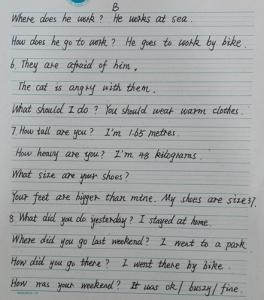 B
Where does he work? He works at sea.
How does he go to work? He goes to work by bike.
6. They are afraid of him.
The cat is angry with them.
What should I do? You should wear warm clothes.
7. How tall are you? I'm 1.65 metres.
How heavy are you? I'm 48 kilograms.
What size are your shoes?
Your feet are bigger than mine. My shoes are size 37.
8 What did you do yesterday? I stayed at home.
Where did you go last weekend? I went to a park
How did you go there? I went there by bike.
How was your weekend? It was ok/ buszy/ fine.